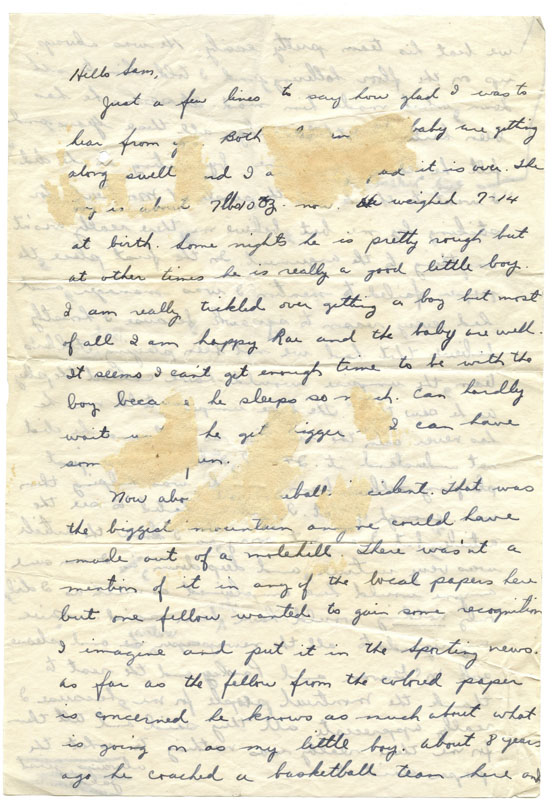 Hello Sam,
Just a few lines to say how glad I was to
hear from y Both in baby are getting
along swell nd I a ad it is over. The
y is about 7lbs10oz. now. He weighed 7-14
at birth. Some nights he is pretty rough but
at other times he is really a good little boy.
I am really tickled over getting a boy but most
of all I am happy Rae and the baby are well.
It seems I can't get enough time to be with the
boy becau e he sleeps so much. Can hardly
wait u he get bigger I can have
som fun.
Now abo eball incident. That was
the biggest mountain anyone could have
made out of a molehill. There wasn't a
mention of it in any of the local papers here
but one fellow wanted to gain some recognition
I imagine and put it in the Sporting news.
As far as the fellow from the colored paper
is concerned he knows as much about what
is going on as my little boy. About 8 years
ago he coached a basketball team here and